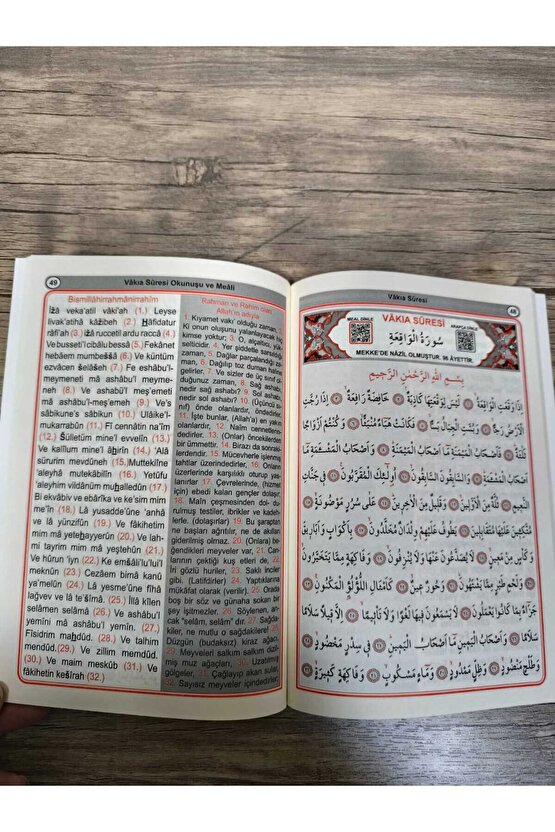 49
Vâkıa Sûresi Okunuşu ve Meâli
Bismillâhirrahmânirrahîm
İżâ veka'atil vâki'ah (1.) Leyse
livak'atihâ kâżibeh (2.) Ḣâfidatur
râfi'ah (3.) iżâ ruccetil ardu raccâ (4.)
Ve busseti'l cibâlu bessâ (5.) Fekânet
hebâem mumbessâ (6.) Ve küntüm
ezvâcen selâseh (7.) Fe eshâbu'l-
meymeneti mâ ashâbu'l meyme-
neh (8.) Ve ashâbu'l meş'emeti
mâ ashâbu'l-meş'emeh (9.) Ve's-
sâbikune's sâbikun (10.) Ulâike'l-
mukarrabûn (11.) Fî cennâtin na'îm
(12.) Sülletüm mine'l evvelîn (13.)
Ve kalîlum mine'l âḣirîn (14.) Alâ
sürurim mevdûneh (15.) Muttekiîne
'aleyhâ mutekâbilîn (16.) Yetûfu
'aleyhim vildânum muḣalledûn (17.)
Bi ekvâbiv ve ebârîka ve ke'sim mim
me'în (18.) Lâ yusadde'ûne 'anhâ
ve lâ yünzifûn (19.) Ve fâkihetim
mim mâ yeteḣayyerûn (20.) Ve lah-
mi tayrim mim mâ yeştehûn (21.)
Ve hûrun 'iyn (22.) Ke emsâli'lu'lu'il
meknûn (23.) Cezâem bimâ kanû
ya'melûn (24.) Lâ yesme'ûne fîhâ
lağvev ve lâ te'sîmâ. (25.) İllâ kîlen
selâmen selâmâ (26.) Ve ashâbu'l
yemîni mâ ashâbu'l yemîn. (27.)
Fîsidrim maḣdûd. (28.) Ve talhim
mendûd. (29.) Ve zillim memdûd.
(30.) Ve maim meskûb (31.) Ve
fâkihetin kesîrah (32.)
Rahman ve Rahim olan
Allah'ın adıyla
1. Kıyamet vakı' olduğu zaman, 2.
Ki onun oluşunu yalanlayacak hiç
kimse yoktur; 3. O, alçaltıcı, yük-
selticidir. 4. Yer şiddetle sarsıldığı
zaman, 5. Dağlar parçalandığı za-
man, 6. Dağılıp toz duman haline
gelince, 7. Ve sizler de üç sınıf ol-
duğunuz zaman, 8. Sağ ashabı,
nedir sağ ashabı? 9. Sol ashabı,
nedir sol ashabı? 10. (Üçüncü sı-
nıf) önde olanlardır, öndedirler.
11. İşte bunlar, (Allah'a) en yakın
olanlardır, 12. Naîm cennetlerin-
dedirler. 13. (Onlar) öncekilerden
bir ümmettir. 14. Birazı da sonraki-
lerdendir. 15. Mücevherle işlenmiş
tahtlar üzerindedirler, 16. Onların
üzerlerinde karşılıklı oturup yasla-
nırlar. 17. Çevrelerinde, (hizmet
için) ebedi kalan gençler dolaşır;
18. Maîn çeşmesinden dol-
durulmuş testiler, ibrikler ve kadeh-
lerle. (dolaşırlar) 19. Bu şaraptan
ne başları ağrıtılır, ne de akılları
giderilmiş olmaz. 20. (Onlara) be-
ğendikleri meyveler var, 21. Can-
larının çektiği kuş etleri de, 22.
İri gözlü huriler, 23. Saklı inciler
gibi. (Latifdirler) 24. Yaptıklarına
mükâfat olarak (verilir). 25. Orada
boş bir söz ve günaha sokan bir
şey işitmezler. 26. Söylenen, an-
cak "selâm, selâm" dır. 27. Sağdak-
iler, ne mutlu o sağdakilere! 28.
Düzgün (budaksız) kiraz ağacı,
29. Meyveleri salkım salkım dizil-
miş muz ağaçları, 30. Uzatılmış
gölgeler, 31. Çağlayıp akan sular,
32. Sayısız meyveler içindedirler;
Vâkıa Sûresi
48
MEAL DİNLE
VÂKIA SÛRESİ
ARAPÇA DİNLE
سُورَةُ الْوَاقِعَةِ
MEKKE'DE NÂZİL OLMUŞTUR. 96 ÂYETTİR.
بِسْمِ اللهِ الرَّحْمٰنِ الرَّحِيمِ
اِذَا وَقَعَتِ الْوَاقِعَةُ ۝ لَيْسَ لِوَقْعَتِهَا كَاذِبَةٌ ۝ خَافِضَةٌ رَافِعَةٌ ۝ اِذَا رُجَّتِ
الْاَرْضُ رَجًّا ۝ وَبُسَّتِ الْجِبَالُ بَسًّا ۝ فَكَانَتْ هَبَاءً مُنْبَثًّا ۝ وَكُنْتُمْ اَزْوَاجًا
ثَلٰثَةً ۝ فَاَصْحَابُ الْمَيْمَنَةِ مَا اَصْحَابُ الْمَيْمَنَةِ ۝ وَاَصْحَابُ الْمَشْـَٔمَةِ مَا
اَصْحَابُ الْمَشْـَٔمَةِ ۝ وَالسَّابِقُونَ السَّابِقُونَ ۝ اُولٰٓئِكَ الْمُقَرَّبُونَ ۝ فِي جَنَّاتِ
النَّعِيمِ ۝ ثُلَّةٌ مِنَ الْاَوَّلِينَ ۝ وَقَلِيلٌ مِنَ الْاٰخِرِينَ ۝ عَلٰى سُرُرٍ مَوْضُونَةٍ ۝
مُتَّكِـِٔينَ عَلَيْهَا مُتَقَابِلِينَ ۝ يَطُوفُ عَلَيْهِمْ وِلْدَانٌ مُخَلَّدُونَ ۝ بِاَكْوَابٍ وَاَبَارِيقَ
وَكَأْسٍ مِنْ مَعِينٍ ۝ لَا يُصَدَّعُونَ عَنْهَا وَلَا يُنْزِفُونَ ۝ وَفَاكِهَةٍ مِمَّا يَتَخَيَّرُونَ
۝ وَلَحْمِ طَيْرٍ مِمَّا يَشْتَهُونَ ۝ وَحُورٌ عِينٌ ۝ كَاَمْثَالِ اللُّؤْلُؤِ الْمَكْنُونِ ۝
جَزَاءً بِمَا كَانُوا يَعْمَلُونَ ۝ لَا يَسْمَعُونَ فِيهَا لَغْوًا وَلَا تَأْثِيمًا ۝ اِلَّا قِيلًا سَلَامًا
سَلَامًا ۝ وَاَصْحَابُ الْيَمِينِ مَا اَصْحَابُ الْيَمِينِ ۝ فِي سِدْرٍ مَخْضُودٍ ۝
وَطَلْحٍ مَنْضُودٍ ۝ وَظِلٍّ مَمْدُودٍ ۝ وَمَاءٍ مَسْكُوبٍ ۝ وَفَاكِهَةٍ كَثِيرَةٍ ۝